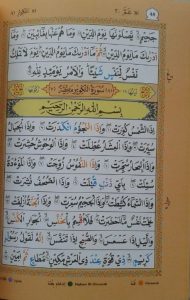 جَحِيمٍ يَصْلَوْنَهَا يَوْمَ الدِّينِ وَمَا هُمْ عَنْهَا بِغَآئِبِينَ وَمَآ
أَدْرٰىكَ مَا يَوْمُ الدِّينِ ثُمَّ مَآ أَدْرٰىكَ مَا يَوْمُ الدِّينِ يَوْمَ لَا تَمْلِكُ
نَفْسٌ لِّنَفْسٍ شَيْئًا وَالْأَمْرُ يَوْمَئِذٍ لِّلَّهِ
بِسْمِ اللَّهِ الرَّحْمٰنِ الرَّحِيمِ
إِذَا الشَّمْسُ كُوِّرَتْ وَإِذَا النُّجُومُ انْكَدَرَتْ وَإِذَا الْجِبَالُ
سُيِّرَتْ وَإِذَا الْعِشَارُ عُطِّلَتْ وَإِذَا الْوُحُوشُ حُشِرَتْ وَإِذَا
الْبِحَارُ سُجِّرَتْ وَإِذَا النُّفُوسُ زُوِّجَتْ وَإِذَا الْمَوْءُودَةُ
سُئِلَتْ بِأَيِّ ذَنْبٍ قُتِلَتْ وَإِذَا الصُّحُفُ نُشِرَتْ وَإِذَا
السَّمَآءُ كُشِطَتْ وَإِذَا الْجَحِيمُ سُعِّرَتْ وَإِذَا الْجَنَّةُ أُزْلِفَتْ
عَلِمَتْ نَفْسٌ مَّآ أَحْضَرَتْ فَلَآ أُقْسِمُ بِالْخُنَّسِ الْجَوَارِ الْكُنَّسِ
وَاللَّيْلِ إِذَا عَسْعَسَ وَالصُّبْحِ إِذَا تَنَفَّسَ إِنَّهُ لَقَوْلُ رَسُولٍ
كَرِيمٍ ذِي قُوَّةٍ عِنْدَ ذِي الْعَرْشِ مَكِينٍ مُّطَاعٍ ثَمَّ أَمِينٍ